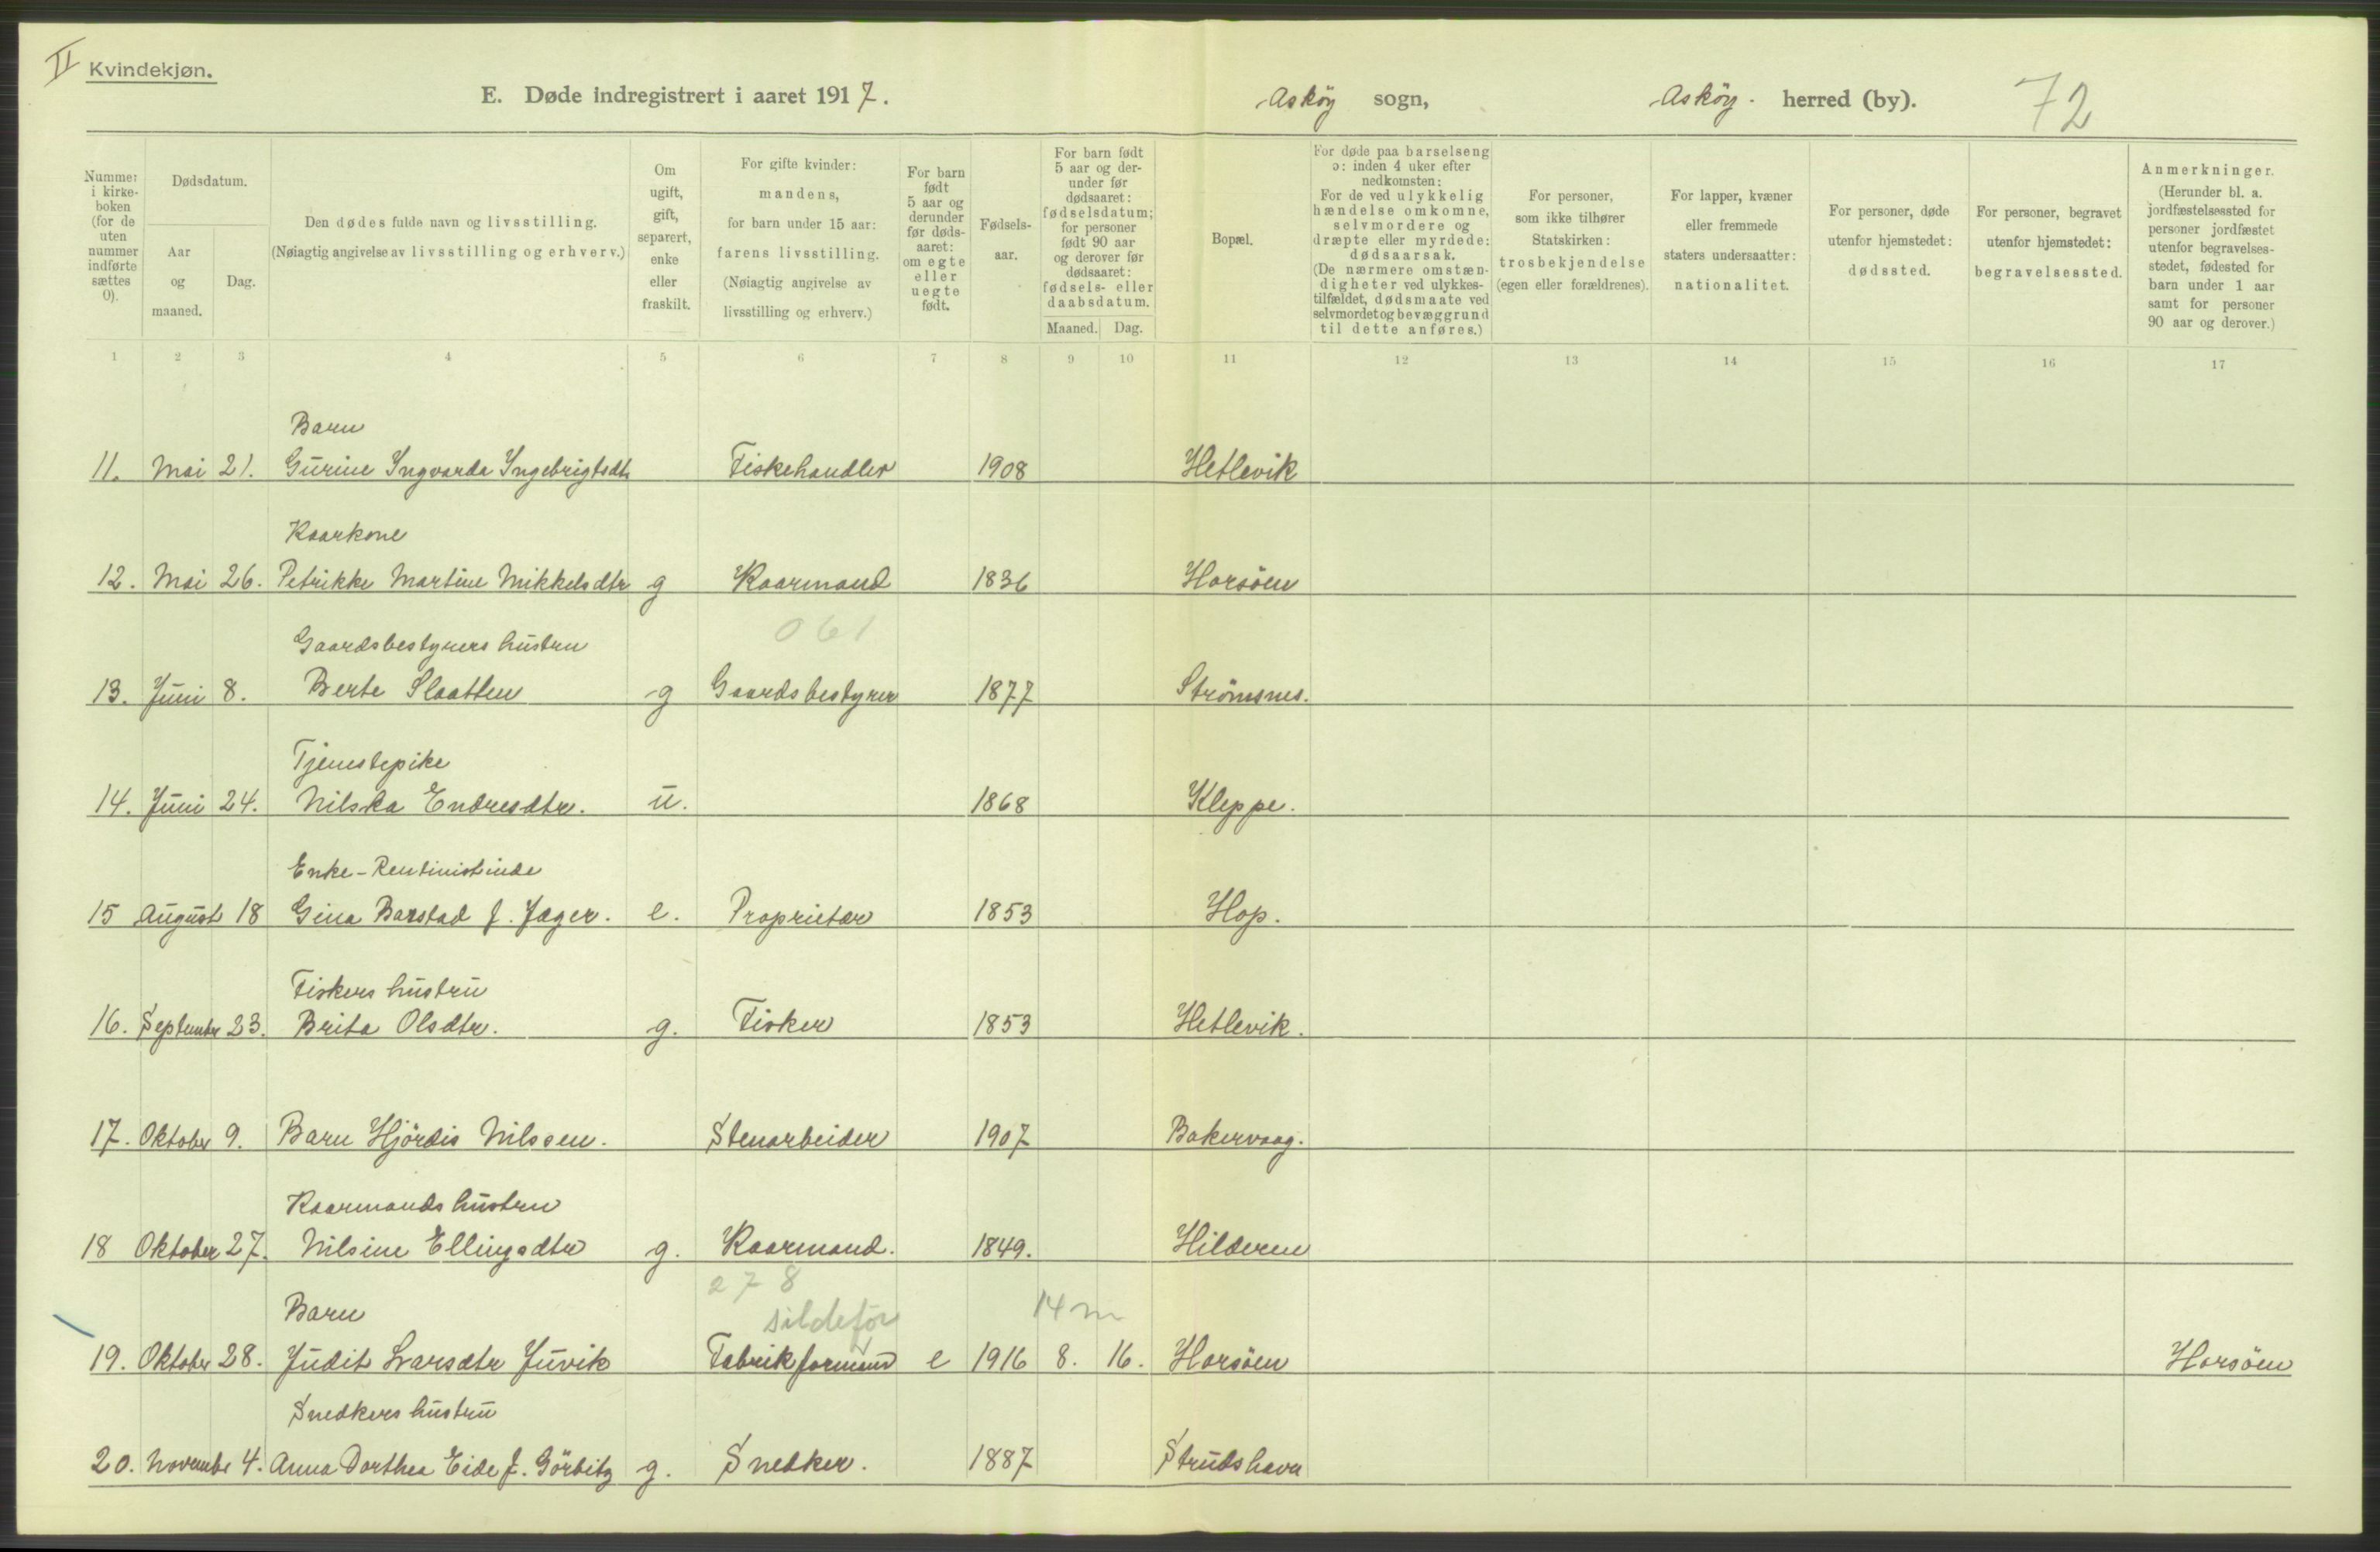 II
Kvindekjøn.
E. Døde indregistrert i aaret 1917. Askøy sogn, Askøy. herred (by). 72
Nummer
i kirke-
boken
(for de
uten
nummer
indførte
sættes
0).
Dødsdatum.
Aar
og
maaned.
Dag.
Den dødes fulde navn og livsstilling.
(Nøiagtig angivelse av livsstilling og erhverv.)
Om
ugift,
gift,
separert,
enke
eller
fraskilt.
For gifte kvinder:
mandens,
for barn under 15 aar:
farens livsstilling.
(Nøiagtig angivelse av
livsstilling og erhverv.)
For barn
født
5 aar og
derunder
før døds-
aaret:
om egte
eller
uegte
født.
Fødsels-
aar.
For barn født
5 aar og der-
under før
dødsaaret:
fødselsdatum;
for personer
født 90 aar
og derover før
dødsaaret:
fødsels- eller
daabsdatum.
Maaned. Dag.
Bopæl.
For døde paa barselseng
ɔ: inden 4 uker efter
nedkomsten;
For de ved ulykkelig
hændelse omkomne,
selvmordere og
dræpte eller myrdede:
dødsaarsak.
(De nærmere omstæn-
digheter ved ulykkes-
tilfældet, dødsmaate ved
selvmordet og bevæggrund
til dette anføres.)
For personer,
som ikke tilhører
Statskirken:
trosbekjendelse
(egen eller forældrenes).
For lapper, kvæner
eller fremmede
staters undersaatter:
nationalitet.
For personer, døde
utenfor hjemstedet:
dødssted.
For personer, begravet
utenfor hjemstedet:
begravelsessted.
Anmerkninger.
(Herunder bl. a.
jordfæstelsessted for
personer jordfæstet
utenfor begravelses-
stedet, fødested for
barn under 1 aar
samt for personer
90 aar og derover.)
1 2 3 4 5 6 7 8 9 10 11 12 13 14 15 16 17
Barn
11. Mai 21. Gurine Ingvarda Ingebrigtsdtr Fiskehandler 1908 Hetlevik
Kaarkone
12. Mai 26. Petrikke Martine Mikkelsdtr g Kaarmand 1836 Horsöen
061
Gaardsbestyrers hustru
13. Juni 8. Berte Slaatten g Gaardsbestyrer 1877 Strömsnes.
Tjenestepike
14. Juni 24. Nilska Endresdtr. u. 1868 Kleppe.
Enke-Rentinistinde
15 August 18 Gina Barstad f. Jæger. e. Proprietær 1853 Hop.
Fiskers hustru
16. September 23. Brita Olsdtr. g. Fisker 1853 Hetlevik.
17. Oktober 9. Barn Hjördis Nilssen. Stenarbeider 1907 Bakervaag.
Kaarmands hustru
18 Oktober 27. Nilsine Ellingsdtr g. Kaarmand. 1849. Hilderen
278
Barn sildefor 14 m
19. Oktober 28. Judit Larsdtr Juvik Fabrikformand e 1916 8. 16. Horsöen Horsöen
Snedkers hustru
20. November 4. Anna Dorthea Eide f. Görbitz g. Snedker. 1887 Strudshavn